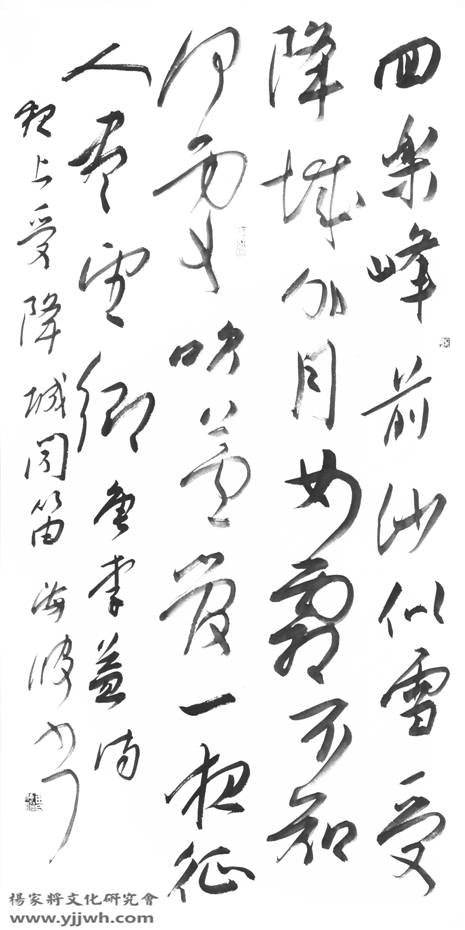 回樂峰前沙似雪受
降城外月如霜不知
何處吹蘆管一夜征
人盡望鄉 唐李益詩
夜上受降城聞笛 海波書
楊家將文化研究會
www.yjjwh.com